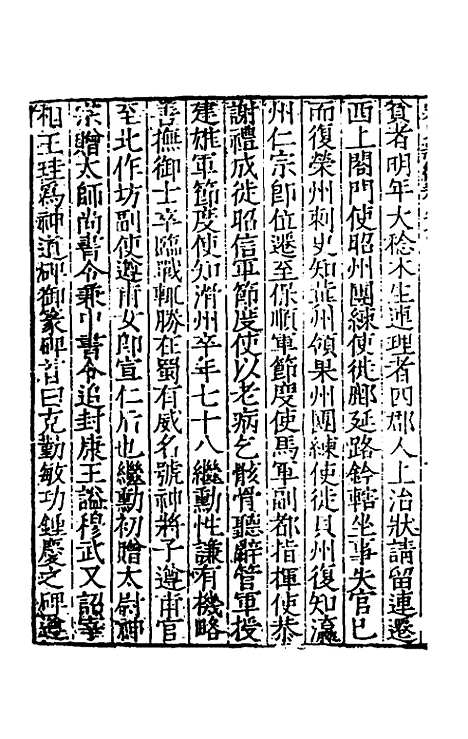 貧者明年大稔木生連理者四郡人上治狀請留連遷
西上閤門使昭州團練使徙鄜延路鈐轄坐事失官已
而復榮州刺史知冀州領果州團練使徙貝州復知瀛
州仁宗即位遷至保順軍節度使馬軍副都指揮使恭
謝禮成徙昭信軍節度使以老病乞骸骨聽辭管軍授
建雄軍節度使知滑州卒年七十八繼勳性謙有機略
善撫御士卒臨戰輒勝在蜀有威名號神將子遵甫官
至北作坊副使遵甫女即宣仁后也繼勳初贈太尉神
宗贈太師尚書令兼中書令追封康王謚穆武又詔宰
相王珪為神道碑御篆碑首曰克勤敏功鍾慶之碑遵